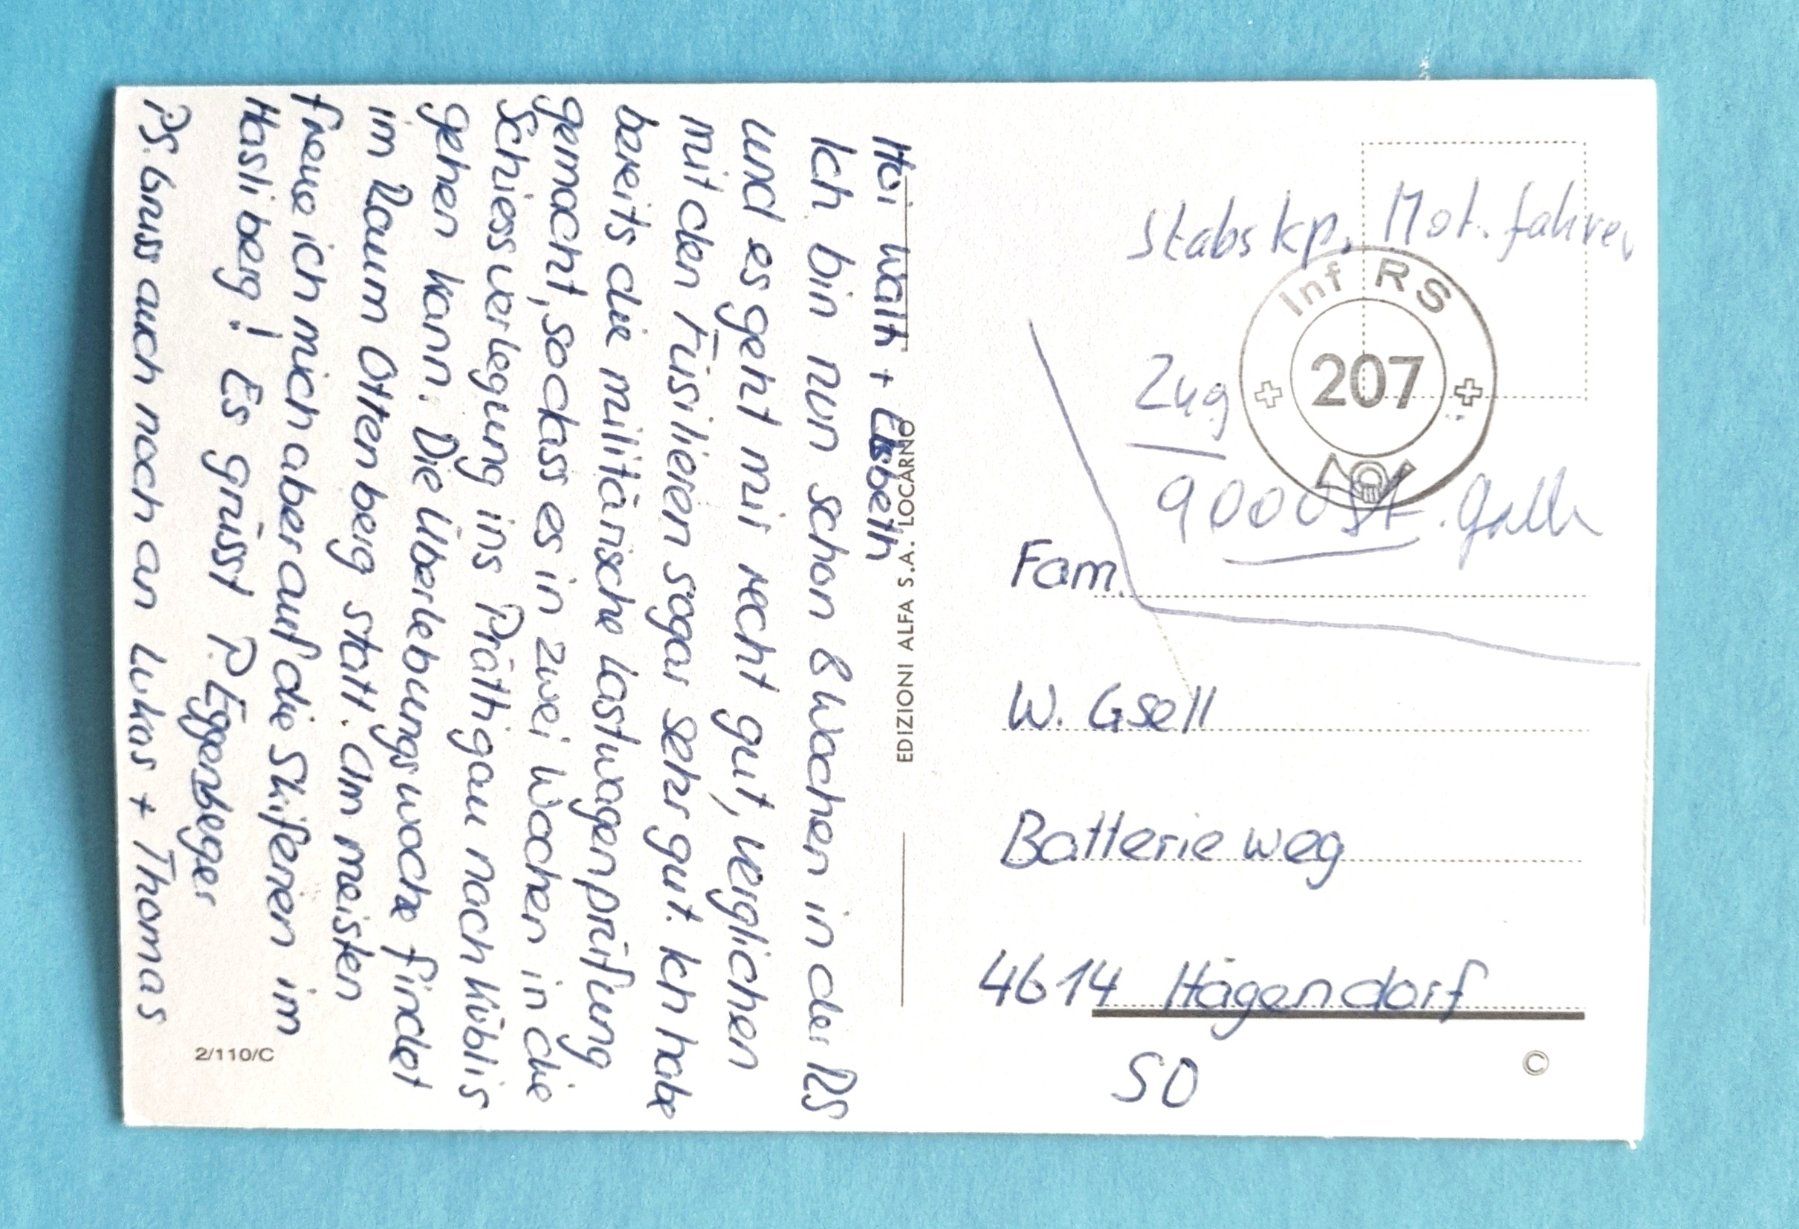 Hoi Walti + Elsbeth
Ich bin nun schon 8 Wochen in der RS
und es geht mir recht gut, verglichen
mit den Füsilieren sogar sehr gut. Ich habe
bereits die militärische Lastwagenprüfung
gemacht, sodass es in zwei Wochen in die
Schiessverlegung ins Prättigau nach Küblis
gehen kann. Die Überlebungswoche findet
im Raum Ottenberg statt. Am meisten
freue ich mich aber auf die Skiferien im
Hasliberg! Es grüsst P. Eggenberger
PS. Gruss auch noch an Lukas + Thomas
2/110/C
EDIZIONI ALFA S.A. LOCARNO
Stabskp. Mot. fahrer
Inf RS
207
Zug
9000 St. Gallen
Fam.
W. Gsell
Batterieweg
4614 Hägendorf
SO
©